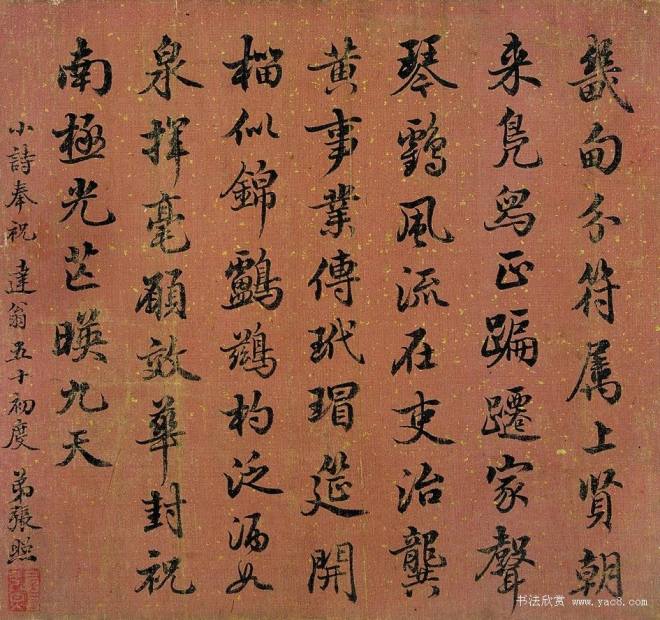 畿甸分符属上賢朝
来鳬舄正蹁躚家聲
琴鶴風流在吏治龔
黄事業傳玳瑁筵開
榴似錦鸕鷀杓泛酒如
泉揮毫願效華封祝
南極光芒暎九天
小詩奉祝 達翁五十初度 弟張照
书法欣赏 www.yac8.com